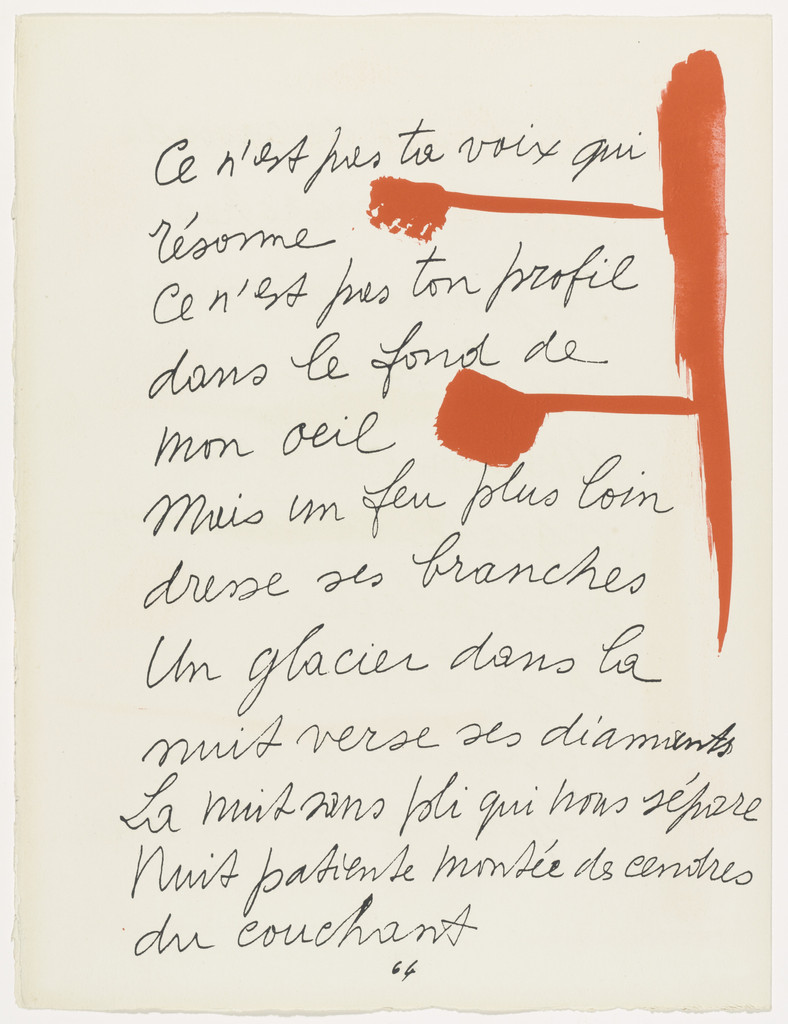 Ce n'est pas ta voix qui
résonne
Ce n'est pas ton profil
dans le fond de
mon oeil
Mais un feu plus loin
dresse ses branches
Un glacier dans la
nuit verse ses diamants
La nuit sans pli qui nous sépare
Nuit patiente montée des cendres
du couchant
64